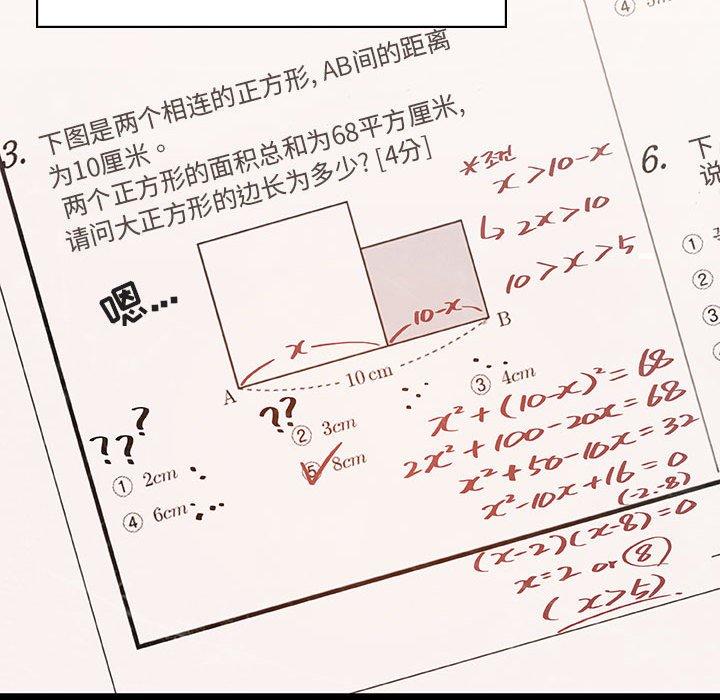 3. 下图是两个相连的正方形, AB间的距离
为10厘米。
两个正方形的面积总和为68平方厘米,
请问大正方形的边长为多少? [4分]
x > 10-x
↳ 2x > 10
10 > x > 5
嗯...
x
10-x
A
B
10 cm
???
??
① 2cm
② 3cm
③ 4cm
④ 6cm
⑤ 8cm
x² + (10-x)² = 68
2x² + 100 - 20x = 68
x² + 50 - 10x = 32
x² - 10x + 16 = 0
(-2.-8)
(x-2)(x-8) = 0
x = 2 or 8
(x > 5).
④
6. 下
说
①
②
③